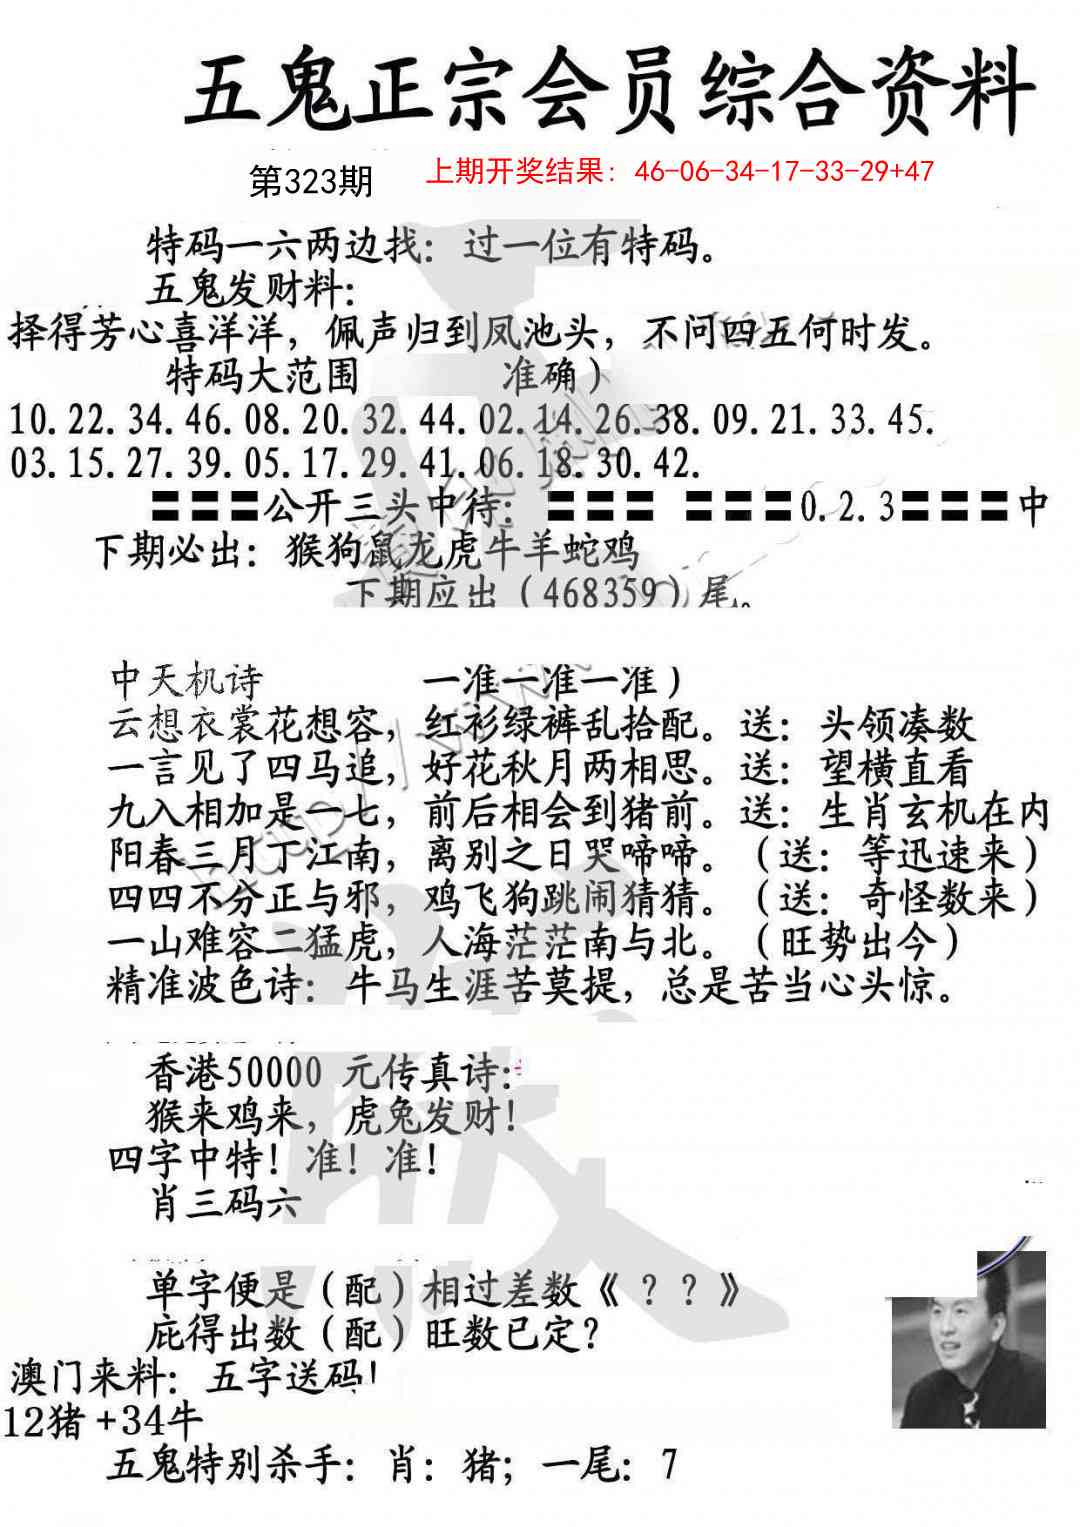 五鬼正宗会员综合资料
第323期
上期开奖结果：46-06-34-17-33-29+47
特码一六两边找：过一位有特码。
五鬼发财料：
择得芳心喜洋洋，佩声归到凤池头，不问四五何时发。
特码大范围 准确）
10.22.34.46.08.20.32.44.02.14.26.38.09.21.33.45.
03.15.27.39.05.17.29.41.06.18.30.42.
〓〓〓公开三头中待：〓〓〓 〓〓〓0.2.3〓〓〓中
下期必出：猴狗鼠龙虎牛羊蛇鸡
下期应出（468359）尾。
中天机诗 一准一准一准）
云想衣裳花想容，红衫绿裤乱拾配。送：头领凑数
一言见了四马追，好花秋月两相思。送：望横直看
九入相加是一七，前后相会到猪前。送：生肖玄机在内
阳春三月丁江南，离别之日哭啼啼。（送：等迅速来）
四四不分正与邪，鸡飞狗跳闹猜猜。（送：奇怪数来）
一山难容二猛虎，人海茫茫南与北。（旺势出今）
精准波色诗：牛马生涯苦莫提，总是苦当心头惊。
香港50000 元传真诗：
猴来鸡来，虎兔发财！
四字中特！准！准！
肖三码六
单字便是（配）相过差数《？？》
庇得出数（配）旺数已定？
澳门来料：五字送码！
12猪+34牛
五鬼特别杀手：肖：猪；一尾：7